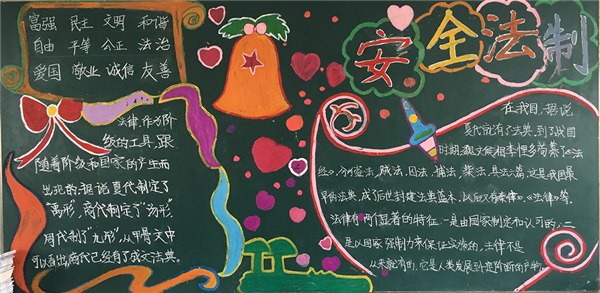 富强 民主 文明 和谐
自由 平等 公正 法治
爱国 敬业 诚信 友善
安全法制
法律,作为阶
级的工具,跟
随着阶级和国家的产生而
出现的,据说夏代制定了
"禹刑",商代制定了"汤刑",
周代制了"九刑",从甲骨文中
可以看出,商代已经有了成文法典。
在我国,据说
夏代就有了法典,到了战国
时期,魏文侯相李悝多尚篡了《法
经》,分《盗法、贼法、囚法、捕法、杂法、具法六篇,这是我国最
早的法典,成了后世封建法典蓝本,以后又有《秦律》、《法律》等.
法律有两个显著的特征,一是由国家制定和认可的,二
是以国家强制力来保证实施的,法律不是
从来就有的,它是人类发展到一定阶段的产物.